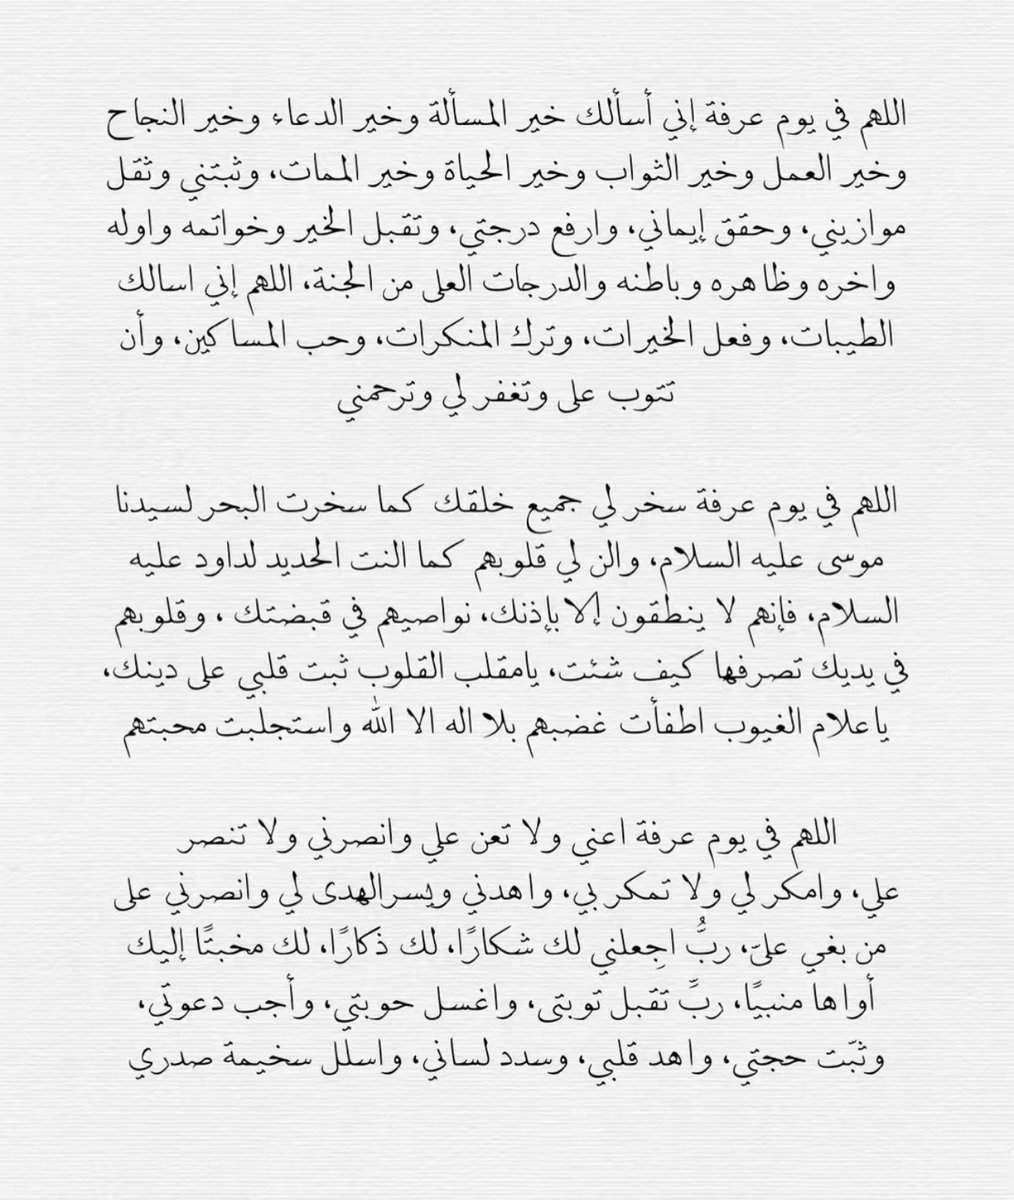 اللهم في يوم عرفة إني أسألك خير المسألة وخير الدعاء وخير النجاح
وخير العمل وخير الثواب وخير الحياة وخير الممات، وثبتني وثقل
موازيني، وحقق إيماني، وارفع درجتي، وتقبل الخير وخواتمه واوله
واخره وظاهره وباطنه والدرجات العلى من الجنة، اللهم إني اسالك
الطيبات، وفعل الخيرات، وترك المنكرات، وحب المساكين، وأن
تتوب على وتغفر لي وترحمني
اللهم في يوم عرفة سخر لي جميع خلقك كما سخرت البحر لسيدنا
موسى عليه السلام، والن لي قلوبهم كما النت الحديد لداود عليه
السلام، فإنهم لا ينطقون إلا بإذنك، نواصيهم في قبضتك ، وقلوبهم
في يديك تصرفها كيف شئت، يامقلب القلوب ثبت قلبي على دينك،
ياعلام الغيوب اطفأت غضبهم بلا اله الا الله واستجلبت محبتهم
اللهم في يوم عرفة اعني ولا تعن علي وانصرني ولا تنصر
علي، وامكر لي ولا تمكر بي، واهدني ويسرالهدى لي وانصرني على
من بغي عليّ، ربُّ اجِعلني لك شكارًا، لك ذكارًا، لك مخبتًا إليك
أواها منبيًا، ربِّ تقبل توبتى، واغسل حوبتي، وأجب دعوتي،
وثبّت حجتي، واهد قلبي، وسدد لساني، واسلل سخيمة صدري